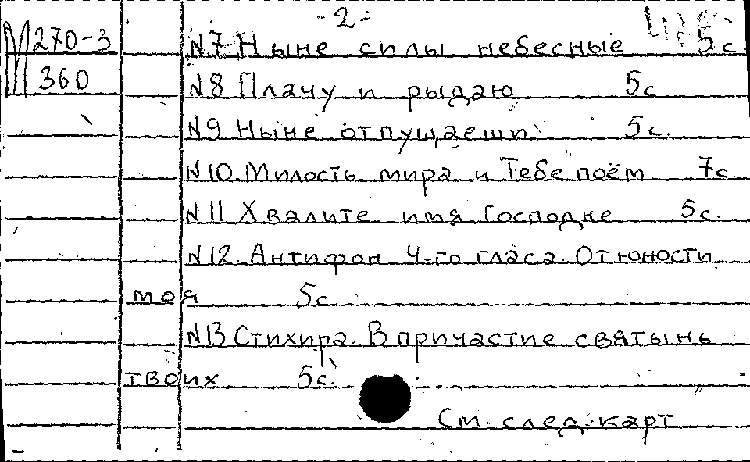 -2-
М270-3
360
№7 Ныне силы небесные 5с
№8 Плачу и рыдаю 5с
№9 Ныне отпущаеши 5с.
№10. Милость мира и Тебе поём 7с
№11 Хвалите имя Господне 5с.
№12. Антифон 4-го гласа. От юности
моя 5с
№13 Стихира. В причастие святынь
твоих 5с.
См. след. карт